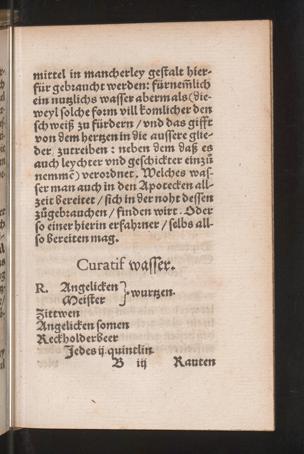 mittel in mancherley gestalt hier-
für gebraucht werden: fürnem̃lich
ein nutzlichs wasser abermals (die-
weyl solche form vill komlicher den
schweiß zu fürdern / vnd das gifft
von dem hertzen in die aussere glie-
der, zutreiben : neben dem daß es
auch leychter vnd geschickter einzů
nemmē) verordnet. Welches was-
ser man auch in den Apotecken all-
zeit bereitet / sich in der noht dessen
zůgebrauchen / finden wirt. Oder
so einer hierin erfahrner / selbs all-
so bereiten mag.
Curatif wasser.
R. Angelicken } wurtzen.
Meister
Zittwen
Angelicken somen
Reckholderbeer
Jedes ij. quintlin.
B iij Rauten